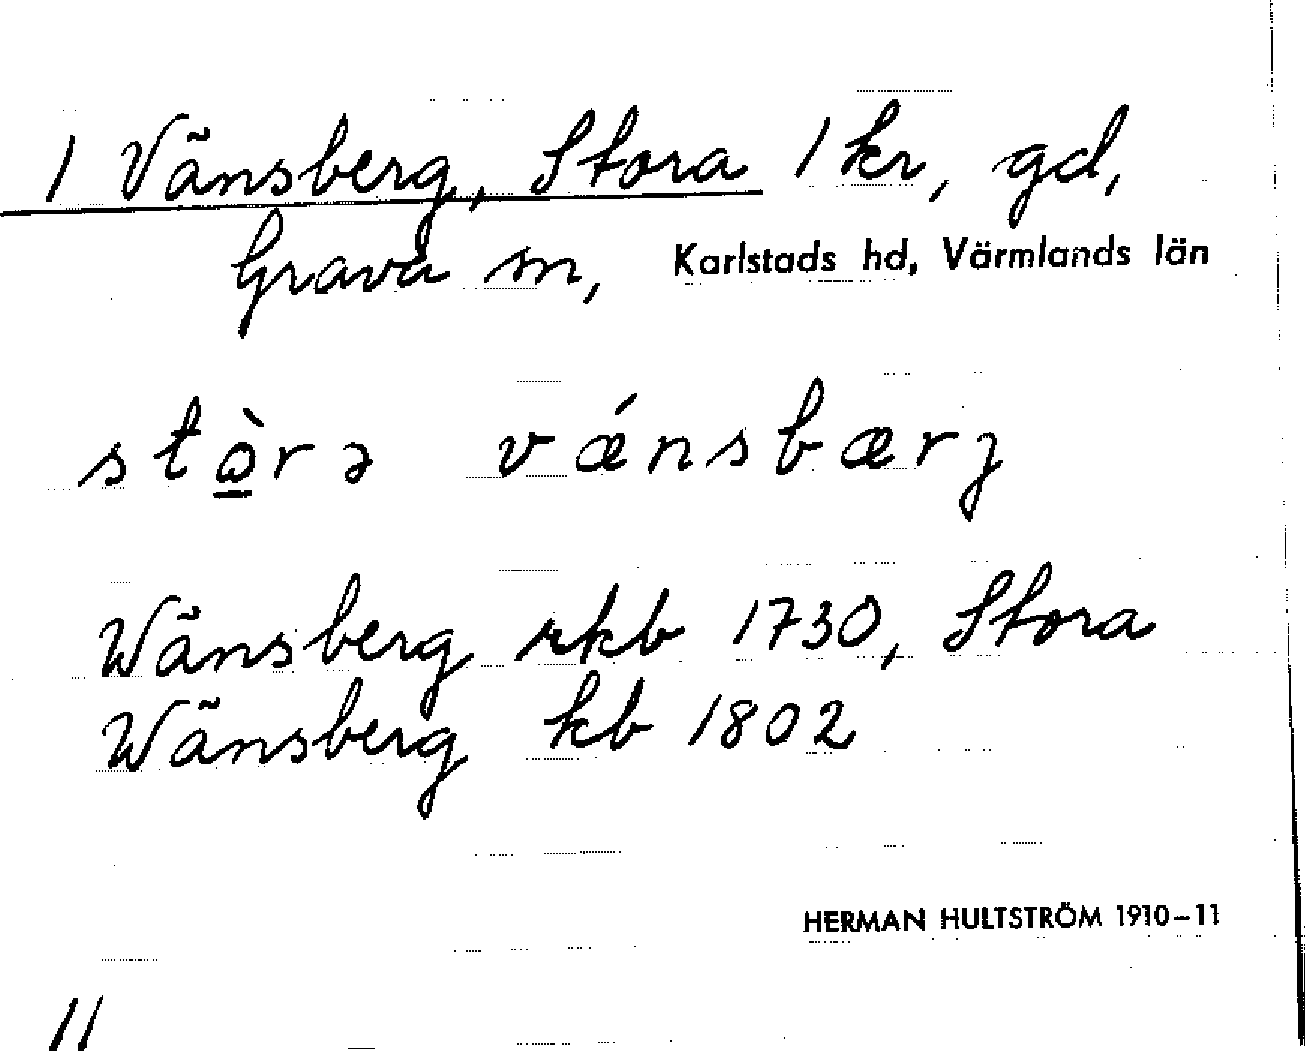 1 Vänsberg, Stora 1 kr, gd,
Grava sn, Karlstads hd, Värmlands län
stὰ̱rə vǽnsbærj
Wänsberg rkb 1730, Stora
Wänsberg kb 1802
HERMAN HULTSTRÖM 1910–11
11